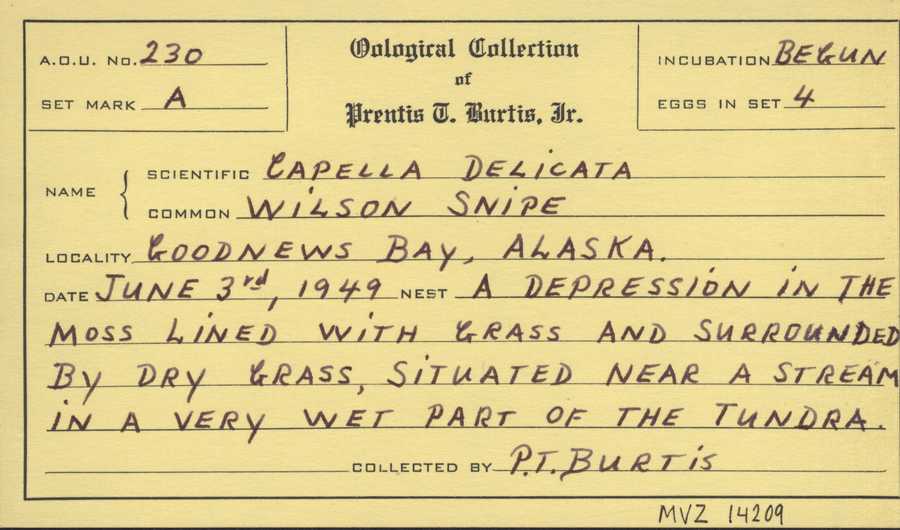 A.O.U. No. 230
SET MARK A
Oological Collection
of
Prentis T. Burtis, Jr.
INCUBATION BEGUN
EGGS IN SET 4
NAME
SCIENTIFIC CAPELLA DELICATA
COMMON WILSON SNIPE
LOCALITY GOODNEWS BAY, ALASKA.
DATE JUNE 3rd, 1949 NEST A DEPRESSION IN THE
MOSS LINED WITH GRASS AND SURROUNDED
BY DRY GRASS, SITUATED NEAR A STREAM
IN A VERY WET PART OF THE TUNDRA.
COLLECTED BY P.T. BURTIS
MVZ 14209